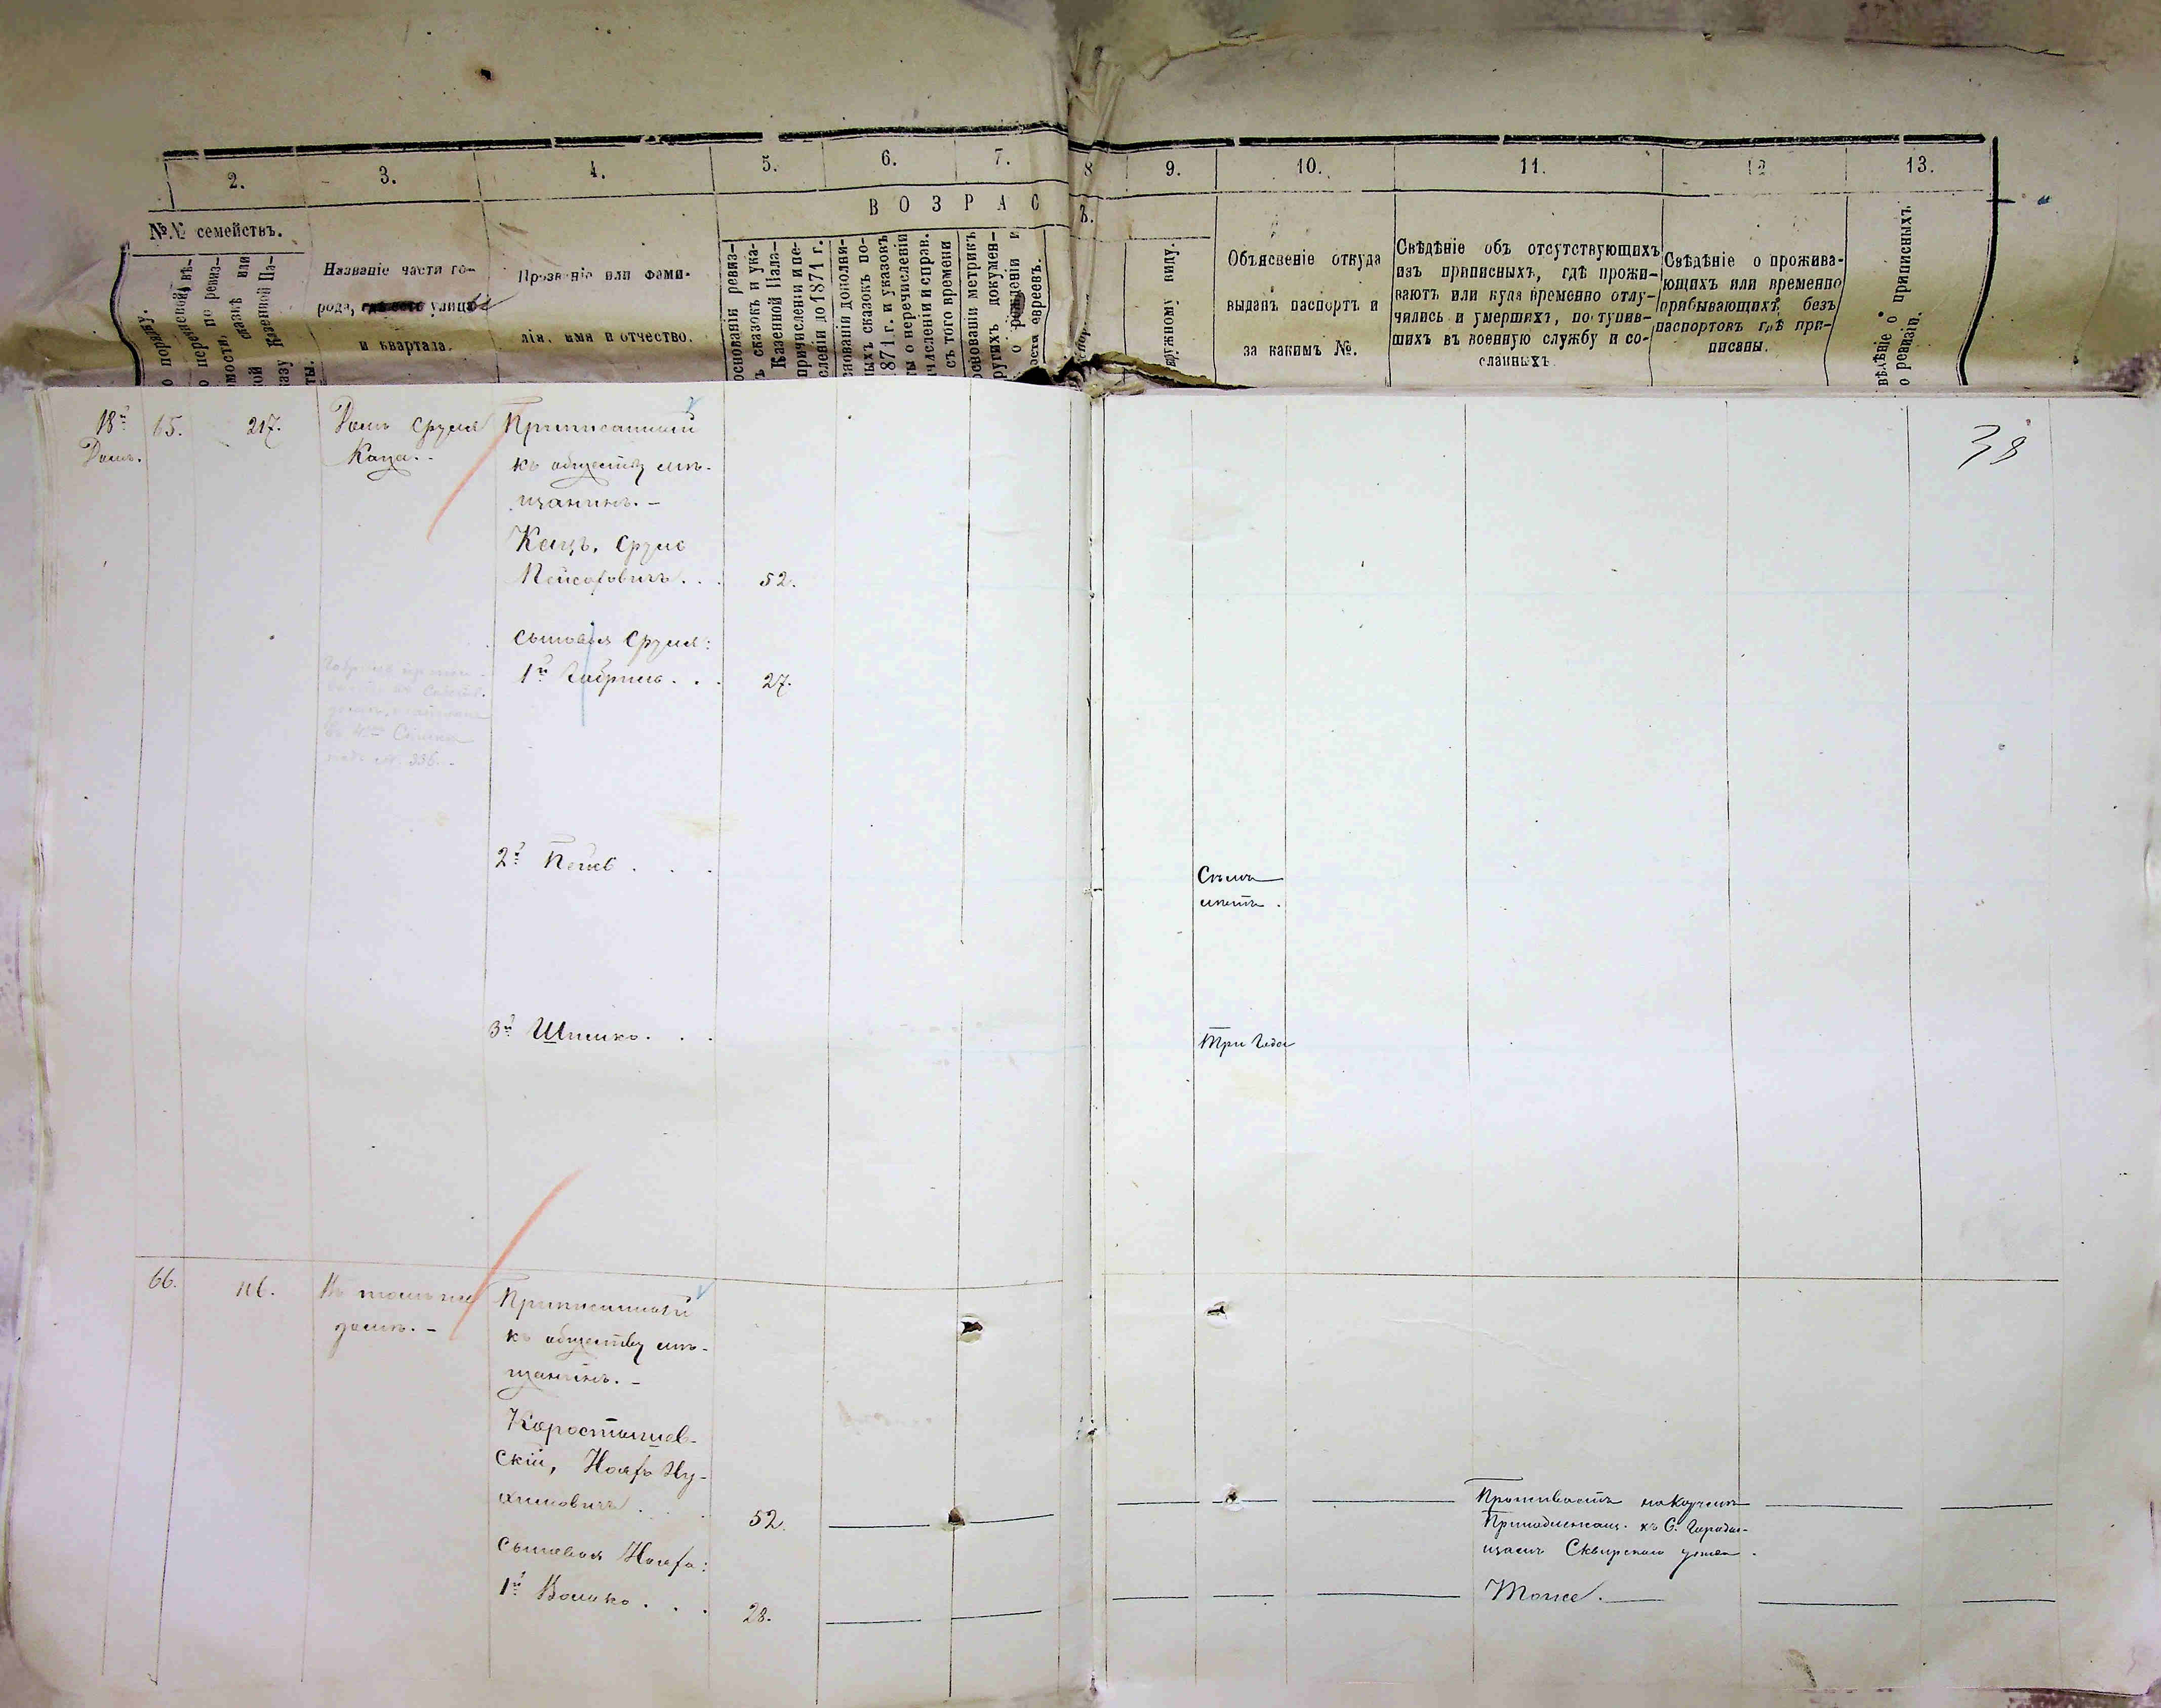 2.
3.
4.
5.
6.
7.
8
9.
10.
11.
12
13.
В О З Р А С
Ъ.
№№ семействъ.
о порядку.
о переписной вѣ-
домости, по ревиз-
ской сказкѣ или
указу Казенной Па-
ты.
Названіе части го-
рода, улицы
и квартала.
Прозваніе или фами-
лія, имя и отчество.
основаніи ревиз-
ъ сказокъ и ука-
Казенной Пала-
причисленіи и пе-
сленіи до 1871 г.
снованіи дополни-
ныхъ сказокъ по-
871 г. и указовъ
ты о перечисленіи
ичисленіи и справ.
съ того времени
основаніи метрикъ
ругихъ докумен-
о рожденіи и
аста евреевъ.
аружному виду.
Объясненіе откуда
выданъ паспортъ и
за какимъ №.
Свѣдѣніе объ отсутствующихъ
изъ приписныхъ, гдѣ прожи-
ваютъ или куда временно отлу-
чились и умершихъ, поступив-
шихъ въ военную службу и со-
сланныхъ
Свѣдѣніе о прожива-
ющихъ или временно
прибывающихъ безъ
паспортовъ гдѣ при-
писаны.
вѣдѣніе о приписныхъ
о ревизіи.
38
18й
Домъ.
65.
217.
Домъ Сруля
Каца..
Приписанный
къ обществу мѣ-
щанинъ. –
Кацъ, Сруль
Пейсаховичъ . . 52.
Сыновья Сруля:
1й Габриль . . 27.
2й Пейс . . .
Семь
лѣтъ .
3й Шлимко . . .
Три года
66.
116.
Въ томъ же
домѣ. –
Приписанный
къ обществу мѣ-
щанинъ. –
Коростышев-
скій, Ноях Ну-
химовичъ . . 52.
Проживаетъ на корчмѣ
Принадлежащ. къ С. Городи-
щамъ Сквирскаго уѣзда.
Сыновья Нояха:
1й Волько . . . 28.
Тоже.